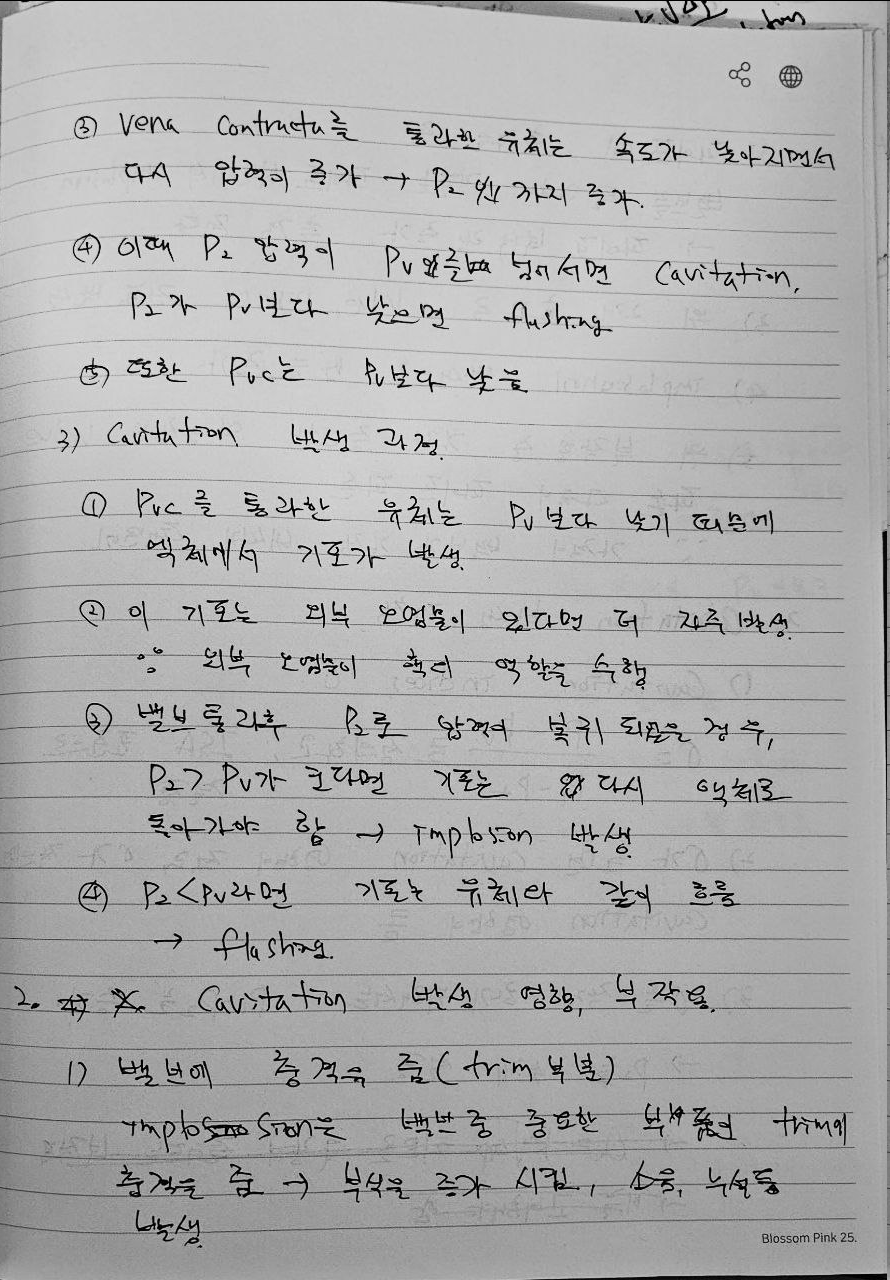 ③ Vena Contracta를 통과한 유체는 속도가 낮아지면서
다시 압력이 증가 → P₂ 까지 증가.
④ 이때 P₂ 압력이 Pv 넘어서면 Cavitation,
P₂가 Pv보다 낮으면 flashing
⑤ 또한 Pvc는 Pv보다 낮음
3) Cavitation 발생 과정.
① Pvc를 통과한 유체는 Pv보다 낮기 때문에
액체에서 기포가 발생.
② 이 기포는 외부 오염물이 있다면 더 자주 발생.
∵ 외부 오염물이 핵의 역할을 수행
③ 밸브 통과후 P₂로 압력이 복귀 되 경우,
P₂>Pv가 크다면 기포는 다시 액체로
돌아가야 함 → Implosion 발생.
④ P₂<Pv라면 기포는 유체와 같이 흐름
→ flashing.
2. Cavitation 발생 영향, 부작용.
1) 밸브에 충격을 줌 (trim 부분)
Implosion은 밸브 중 중요한 부 trim에
충격을 줌 → 부식을 증가 시킴, 소음, 누설등
발생.
Blossom Pink 25.